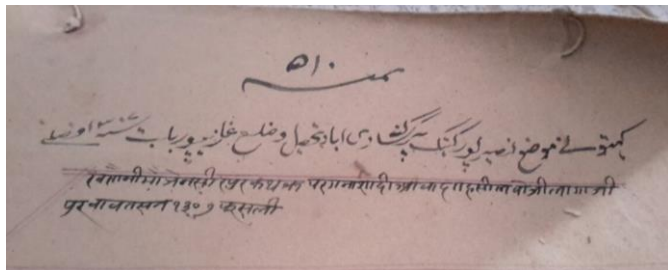 نمبر ۵۱۰
کہتونی موضع نصیرپور کتہک پرگنہ شادی اباد تحصیل و ضلع غازیپور بابت فصلی
मौजे नसीरपुर कथक परगना सादीआबाद तहसील वो जीला गाजी
पुर बाबत सन १३०७ फसली